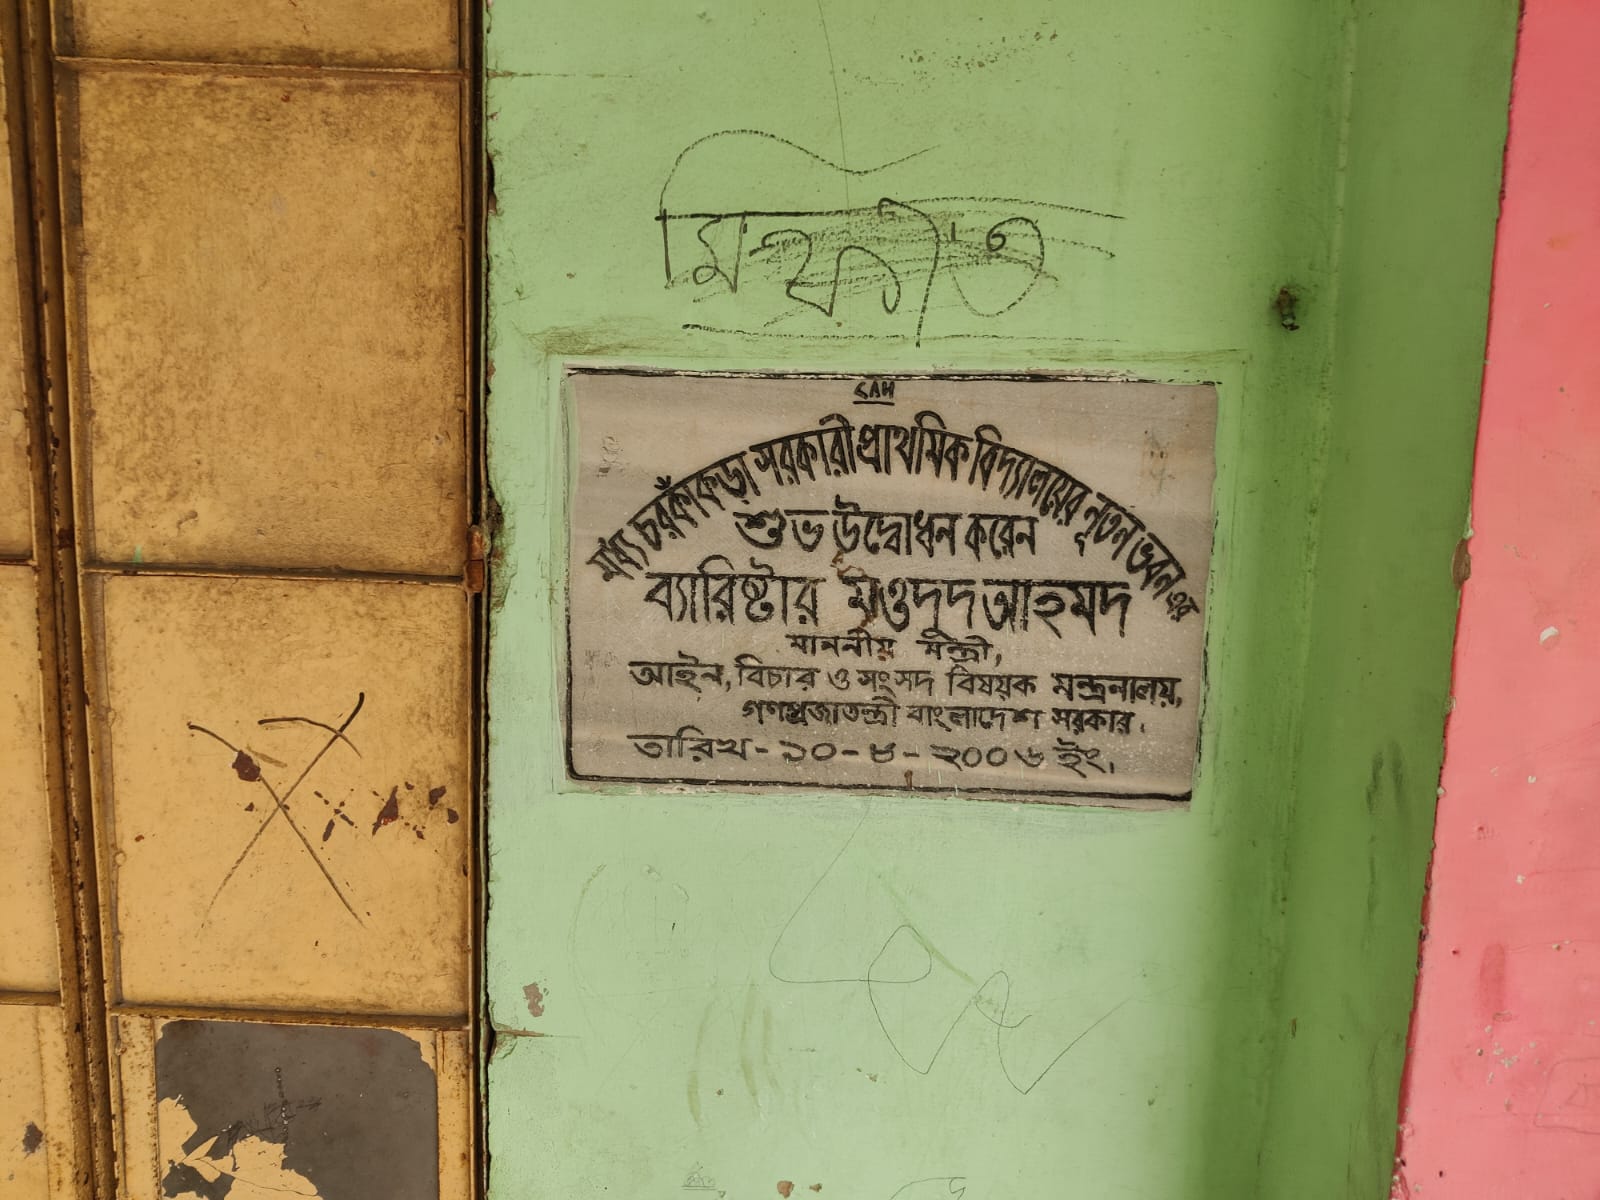 মিফাত
মধ্য চরকাঁকড়া সরকারী প্রাথমিক বিদ্যালয়ের নূতন ভবন এর
শুভ উদ্বোধন করেন
ব্যারিষ্টার মওদুদ আহমদ
মাননীয় মন্ত্রী,
আইন, বিচার ও সংসদ বিষয়ক মন্ত্রনালয়,
গণপ্রজাতন্ত্রী বাংলাদেশ সরকার।
তারিখ - ১০ - ৮ - ২০০৬ ইং।